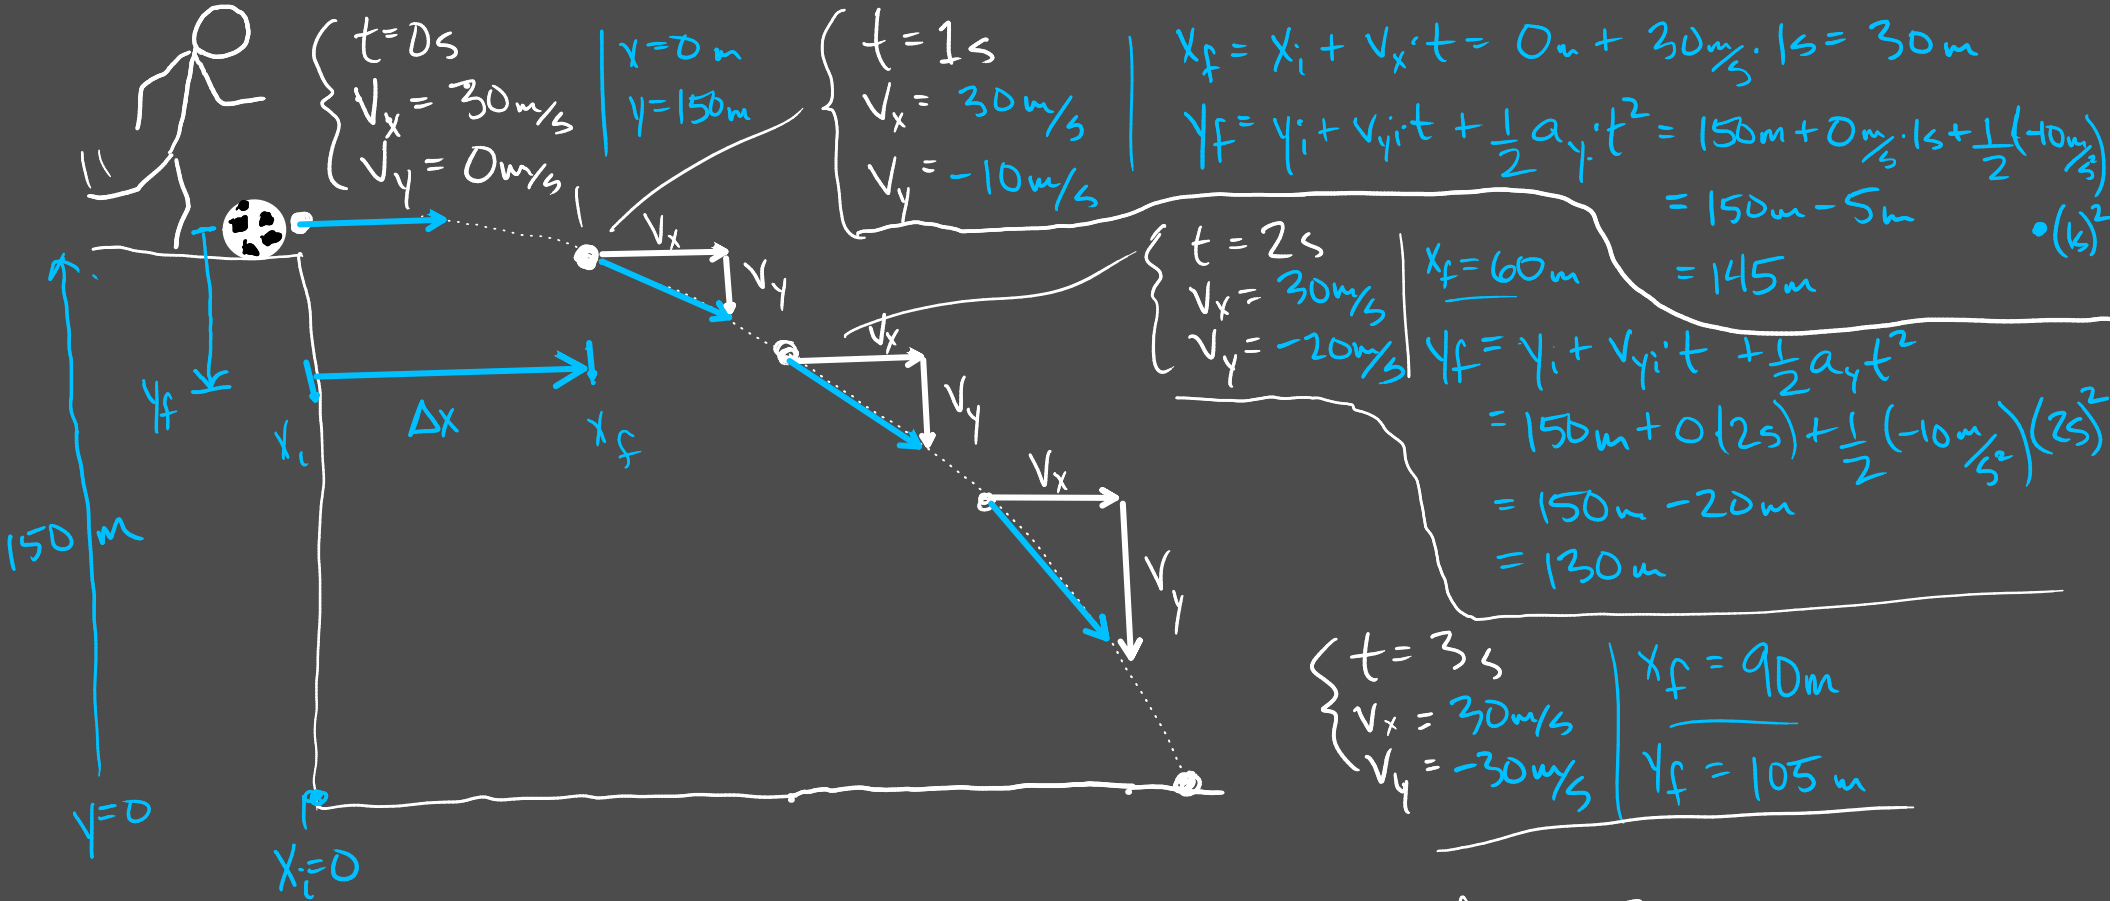 t=0s
Vx = 30m/s
Vy = 0m/s
x=0m
y=150m
t=1s
Vx = 30m/s
Vy = -10m/s
xf = xi + vx·t = 0m + 30m/s·1s = 30m
yf = yi + vyi·t + 1/2 ay·t² = 150m + 0m/s·1s + 1/2(-10m/s²)
·(1s)²
= 150m - 5m
= 145m
t=2s
Vx = 30m/s
Vy = -20m/s
xf = 60m
yf = yi + vyi·t + 1/2 ay t²
= 150m + 0(2s) + 1/2(-10m/s²)(2s)²
= 150m - 20m
= 130m
t=3s
Vx = 30m/s
Vy = -30m/s
xf = 90m
yf = 105m
Vx
Vy
Vx
Vy
Vx
Vy
yf
xi
Δx
xf
150m
y=0
xi=0